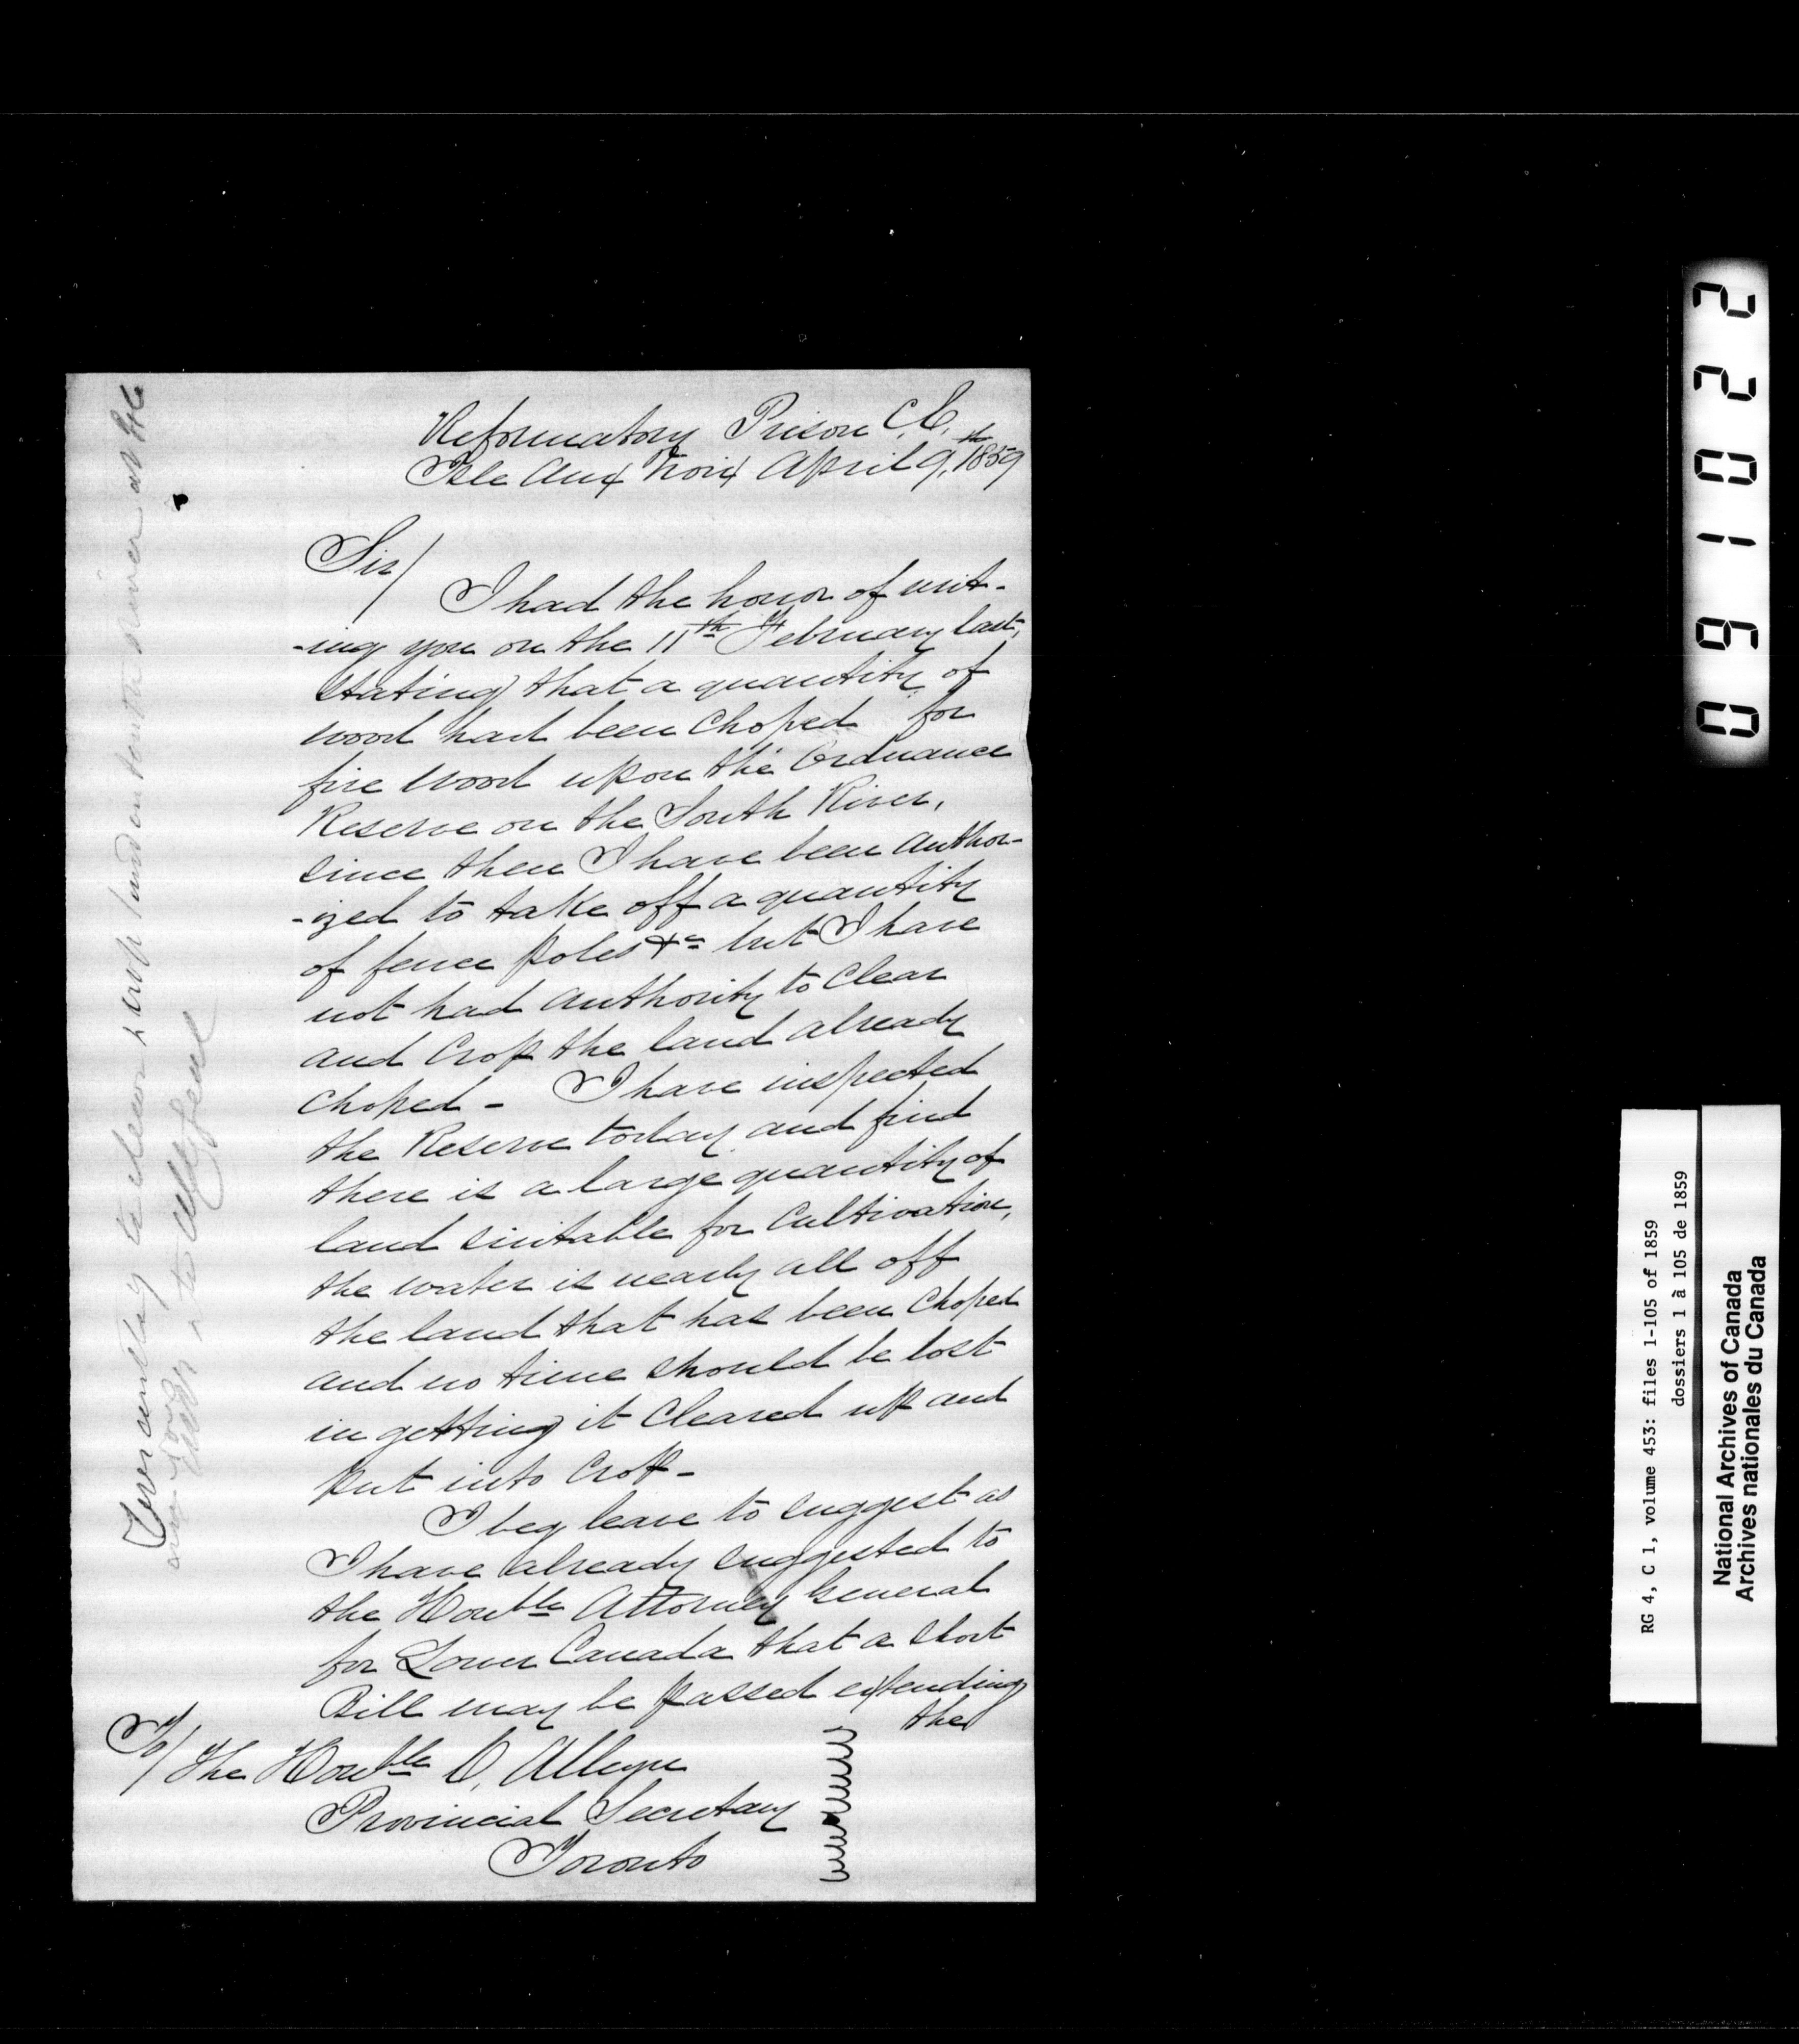 Reformatory Prison C.C.
Isle Aux Noix April 9,th 1859
Sir/
I had the honor of writ-
-ing you on the 11th February last,
stating that a quantity of
wood had been choped for
fire wood upon the Ordnance
Reserve on the South River,
since then I have been author-
-ized to take off a quantity
of fence poles &c but I have
not had authority to clear
and crop the land already
choped - I have inspected
the Reserve today and find
there is a large quantity of
land suitable for cultivation,
the water is nearly all off
the land that has been choped
and no time should be lost
in getting it cleared up and
put into crop -
I beg leave to suggest as
I have already suggested to
the Honble Attorney General
for Lower Canada that a short
Bill may be passed extending
the
To/ The Honble C. Alleyn
Provincial Secretary
Toronto
to clear & crop land on South River at
220160
RG 4, C 1, volume 453: files 1-105 of 1859
dossiers 1 à 105 de 1859
National Archives of Canada
Archives nationales du Canada